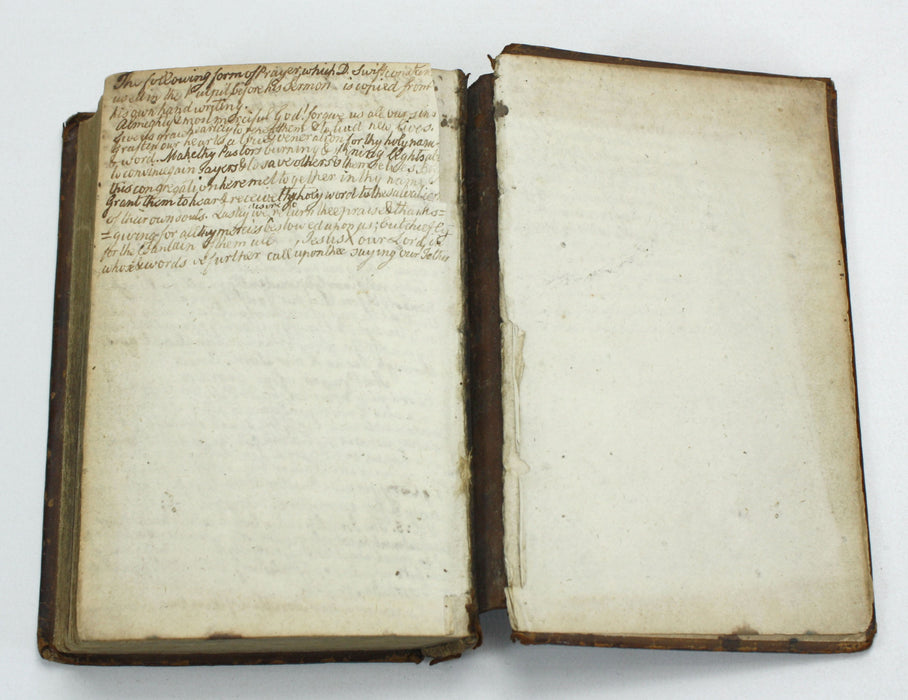 The following form of Prayer, which D. Swift constan
used in the Pulpit before his Sermon is copied from
his own hand writing.
Almighty & most merciful God! forgive us all our sins
give us grace heartily to repent them & to lead new lives.
Graft in our hearts a true veneration for thy holy name
& word. Make thy Pastors burning & shining lights able
to convince gain sayers & to save others & themselves.
this congregation here met together in thy name
grant them to hear & receive thy holy word to the salvation
of their own souls. Lastly we desire to return thee praise & thanks=
=giving for all thy mercies bestowed upon us; but chiefly
for the Fountain of them all Jesus X our Lord, in
whose words we further call upon thee saying Our Father